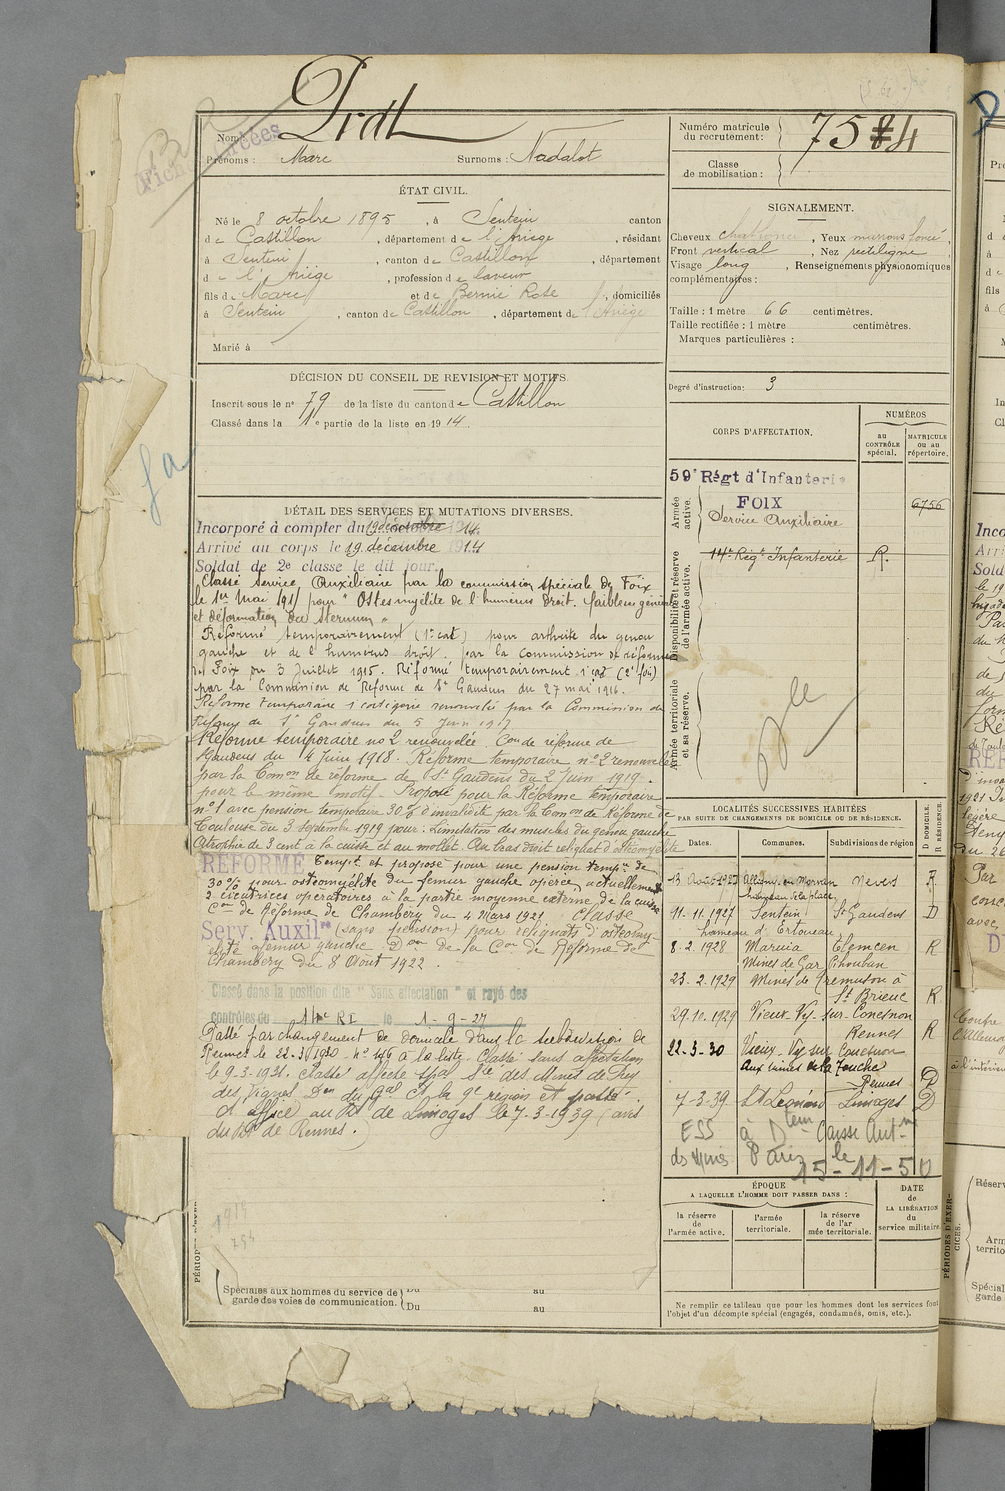 Nom :
Fiches
Prénoms : Marc Surnoms : Nadalot
Numéro matricule du recrutement : 7584
Classe de mobilisation :
ÉTAT CIVIL.
Né le 8 octobre 1895, à Sentein canton
de Castillon, département de l'Ariège, résidant
à Sentein, canton de Castillon, département
de l'Ariège, profession de laveur
fils de Marc et de Bernié Rose, domiciliés
à Sentein, canton de Castillon, département de l'Ariège
Marié à
SIGNALEMENT.
Cheveux, Yeux marrons foncé,
Front vertical, Nez rectiligne,
Visage long, Renseignements physionomiques
complémentaires :
Taille : 1 mètre 66 centimètres.
Taille rectifiée : 1 mètre centimètres.
Marques particulières :
Degré d'instruction : 3
DÉCISION DU CONSEIL DE REVISION ET MOTIFS.
Inscrit sous le n° 79 de la liste du canton de Castillon
Classé dans la 1e partie de la liste en 1914.
DÉTAIL DES SERVICES ET MUTATIONS DIVERSES.
Incorporé à compter du 19 décembre 1914.
Arrivé au corps le 19 décembre 1914
Soldat de 2e classe le dit jour.
Classé Service Auxiliaire par la commission spéciale de Foix
le 1er Mai 191 pour "Ostéomyélite de l'humérus droit. faiblesse générale
et déformation du sternum"
Réformé temporairement (1e cat) pour arthrite du genou
gauche et de l'humérus droit. par la commission de réforme
de Foix du 3 Juillet 1915. Réformé temporairement 1e cat (2e fois)
par la Commission de Réforme de St Gaudens du 27 mai 1916.
Réforme temporaire 1 catégorie renouvelée par la Commission de
Réforme de St Gaudens du 5 Juin 1917
Réforme temporaire no 2 renouvelée Con de réforme de
Gaudens du 4 Juin 1918. Réforme temporaire n° 2 renouvelée
par la Comon de réforme de St Gaudens du 2 Juin 1919.
pour le même motif. Proposé pour la Réforme temporaire
n° 1 avec pension temporaire 30% d'invalidité par la Comon de Réforme de
Toulouse du 3 septembre 1919 pour : Limitation des muscles du genou gauche
Atrophie de 3 cent à la cuisse et au mollet. Au bras droit reliquat d'ostéomyélite
RÉFORMÉ Tempt et proposé pour une pension tempre de
30% pour ostéomyélite du fémur gauche opérée, actuellement
2 cicatrices opératoires à la partie moyenne externe de la cuisse
Con de Réforme de Chambéry du 4 Mars 1921 Classé
Serv. Auxilre (sans pension) pour reliquats d'ostéomy-
élite fémur gauche Don de la Con de Réforme de
Chambéry du 8 Août 1922.
Classé dans la position dite "Sans affectation" et rayé des
contrôles du 14e RI le 1-9-27
Passé par changement de domicile dans la subdivision de
Rennes le 22-3-1930 - n° 196 à la liste. Classé sans affectation
le 9-3-1931. Classé affecté spal Sté des Mines de Puy
des Vignes Don du Gal Ct la 9e région et passé
d'office au Rt de Limoges le 7-3-1939 (ans
du Rt de Rennes.)
PÉRIODES
Spéciales aux hommes du service de garde des voies de communication. Du au
Du au
CORPS D'AFFECTATION.
NUMÉROS
au CONTRÔLE spécial.
MATRICULE ou au répertoire.
Armée active.
59e Régt d'Infanterie
FOIX
6756
Service Auxiliaire
Disponibilité et réserve de l'armée active.
14e Régt Infanterie R.
Armée territoriale et sa réserve.
LOCALITÉS SUCCESSIVES HABITÉES
PAR SUITE DE CHANGEMENTS DE DOMICILE OU DE RÉSIDENCE.
D DOMICILE.
R RÉSIDENCE.
Dates. Communes. Subdivisions de région
13 Août 1927 Alligny en Morvan Nevers R
11-11-1927 Sentein St Gaudens D
hameau d'Ertouran
8-2-1928 Marnia Tlemcen R
Mines de Gar Rhouban
23-2-1929 Mines de Tremuson à
St Brieuc R
29-10-1929 Vieux-Vy-sur-Couesnon
Rennes R
22-3-30 Vieux-Vy sur Couesnon
aux mines de la Touche
Rennes D
7-3-39 St Léonard Limoges D
ESS à Dtem Caisse Autme
ds Mines Paris le
15-11-50
ÉPOQUE
A LAQUELLE L'HOMME DOIT PASSER DANS :
DATE de LA LIBÉRATION du service militaire.
la réserve de l'armée active.
l'armée territoriale.
la réserve de l'armée territoriale.
Ne remplir ce tableau que pour les hommes dont les services font
l'objet d'un décompte spécial (engagés, condamnés, omis, etc.).
PÉRIODES D'EXERCICES.